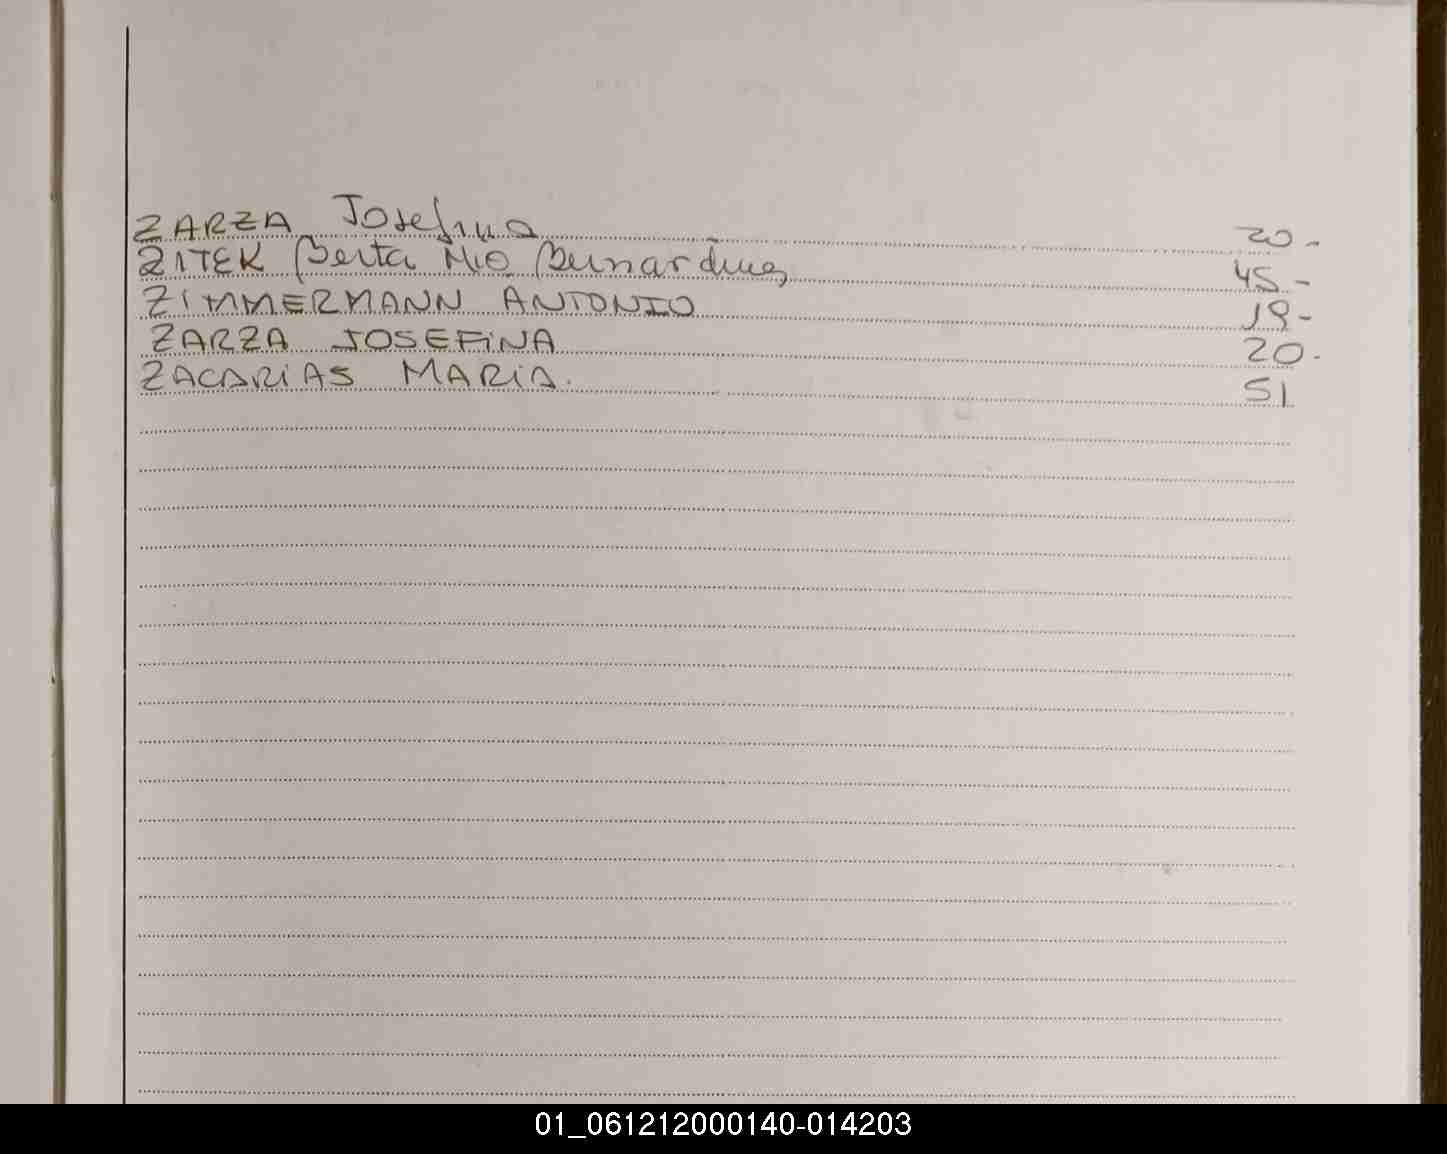 ZARZA Josefina 20-
ZITEK Berta Mio Bernardina 45-
ZIMMERMANN ANTONIO 19-
ZARZA JOSEFINA 20-
ZACARIAS MARIA. 51
01_061212000140-014203